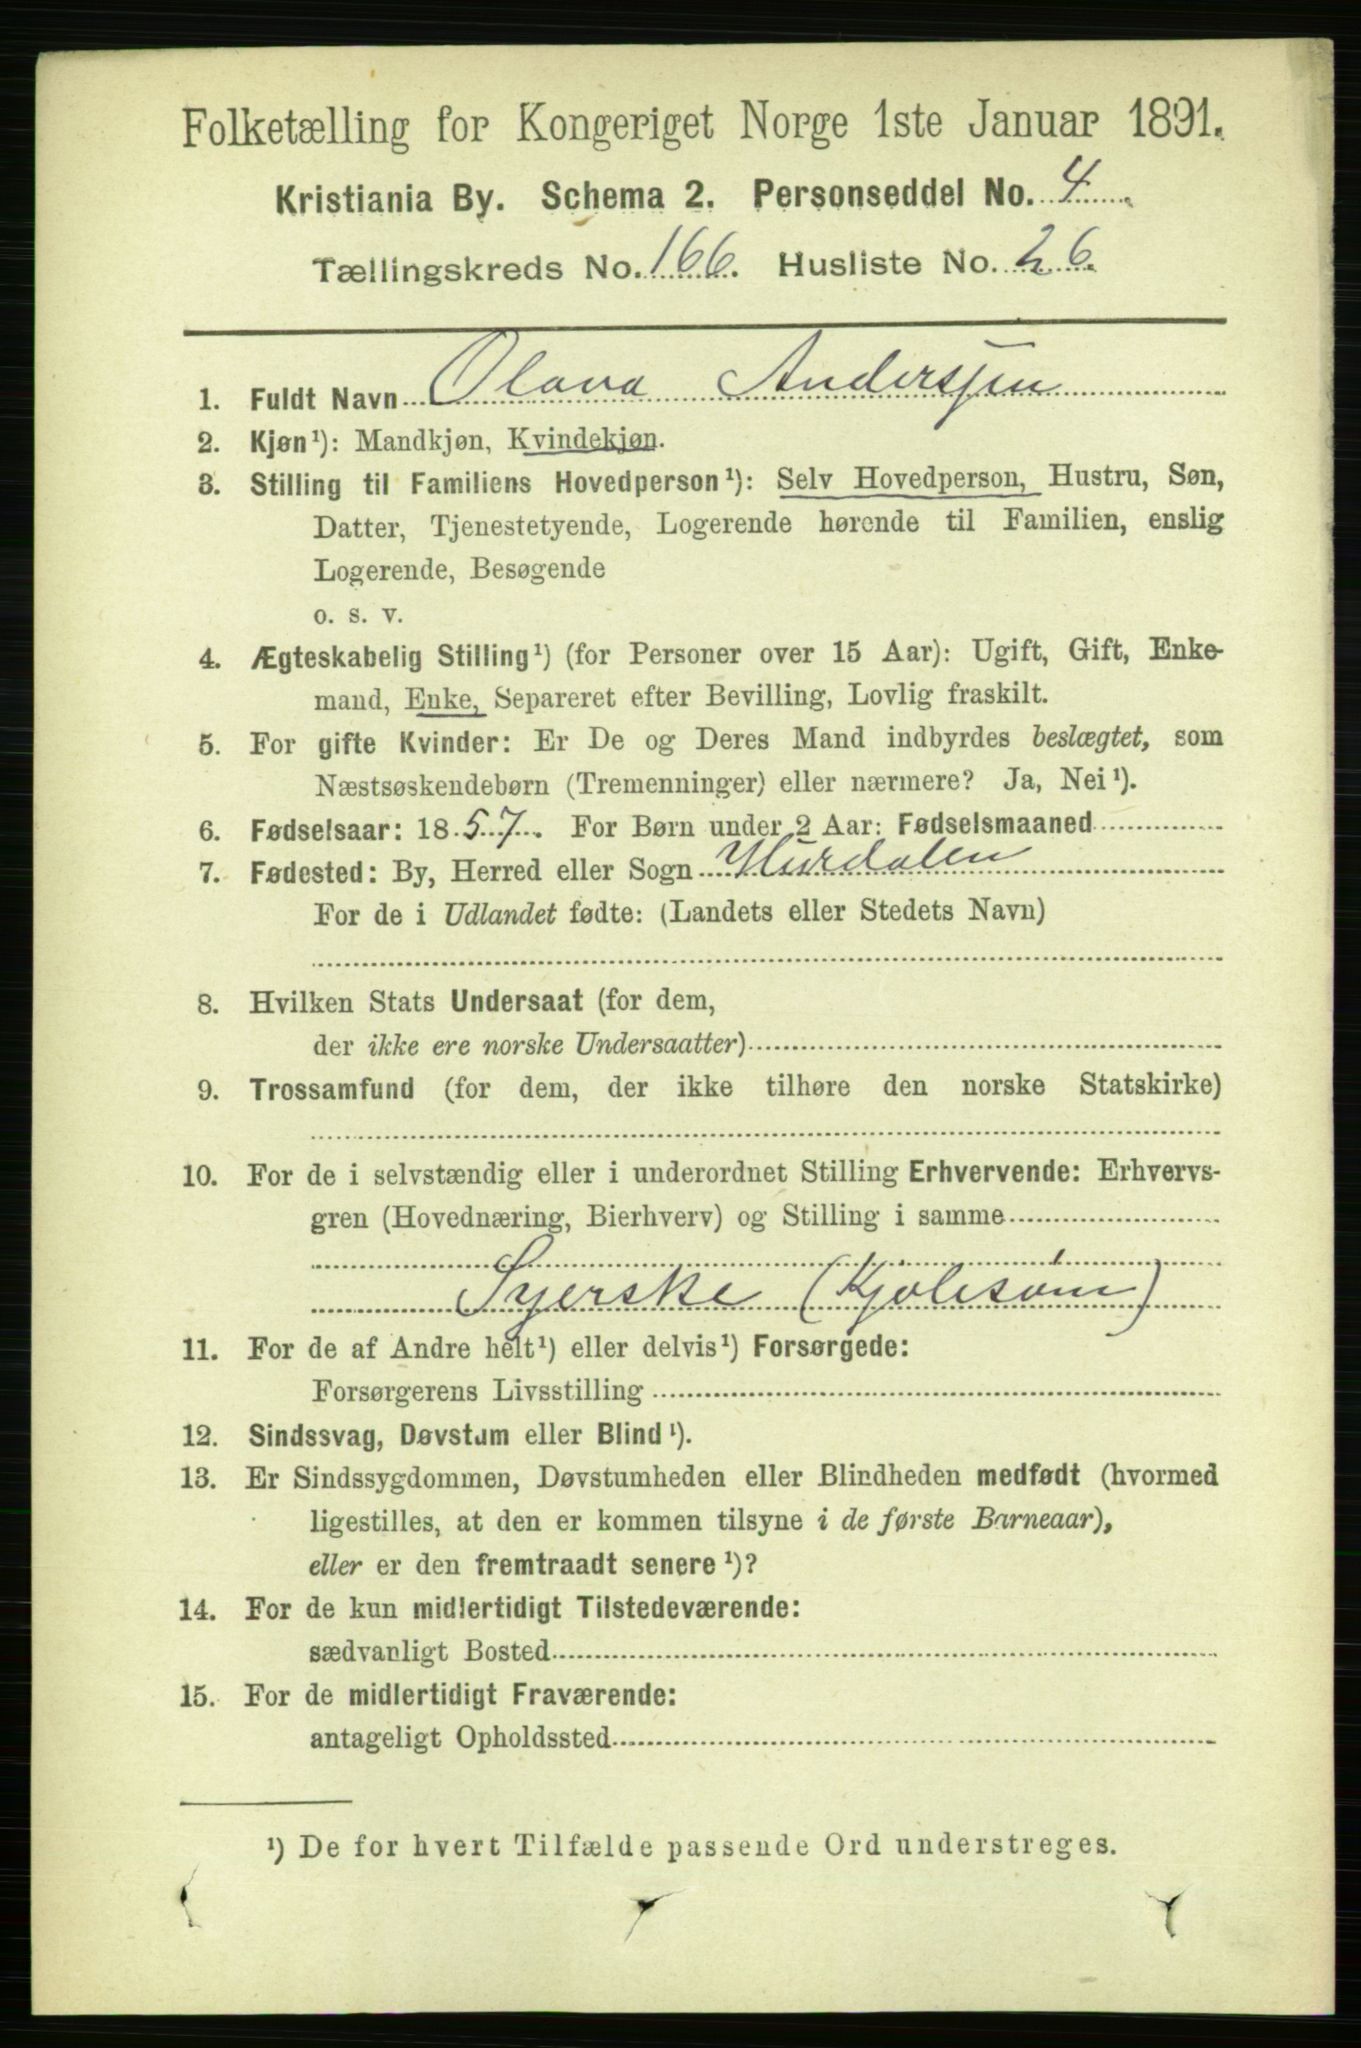 Folketælling for Kongeriget Norge 1ste Januar 1891.
Kristiania By. Schema 2. Personseddel No. 4
Tællingskreds No. 166. Husliste No. 26.
1. Fuldt Navn Olava Andersen
2. Kjøn¹): Mandkjøn, Kvindekjøn.
3. Stilling til Familiens Hovedperson¹): Selv Hovedperson, Hustru, Søn,
Datter, Tjenestetyende, Logerende hørende til Familien, enslig
Logerende, Besøgende
o. s. v.
4. Ægteskabelig Stilling¹) (for Personer over 15 Aar): Ugift, Gift, Enke-
mand, Enke, Separeret efter Bevilling, Lovlig fraskilt.
5. For gifte Kvinder: Er De og Deres Mand indbyrdes beslægtet, som
Næstsøskendebørn (Tremenninger) eller nærmere? Ja, Nei¹).
6. Fødselsaar: 1857. For Børn under 2 Aar: Fødselsmaaned
7. Fødested: By, Herred eller Sogn Hurdalen
For de i Udlandet fødte: (Landets eller Stedets Navn)
8. Hvilken Stats Undersaat (for dem,
der ikke ere norske Undersaatter)
9. Trossamfund (for dem, der ikke tilhøre den norske Statskirke)
10. For de i selvstændig eller i underordnet Stilling Erhvervende: Erhvervs-
gren (Hovednæring, Bierhverv) og Stilling i samme
Syerske (Kjolesøm)
11. For de af Andre helt¹) eller delvis¹) Forsørgede:
Forsørgerens Livsstilling
12. Sindssvag, Døvstum eller Blind¹).
13. Er Sindssygdommen, Døvstumheden eller Blindheden medfødt (hvormed
ligestilles, at den er kommen tilsyne i de første Barneaar),
eller er den fremtraadt senere¹)?
14. For de kun midlertidigt Tilstedeværende:
sædvanligt Bosted
15. For de midlertidigt Fraværende:
antageligt Opholdssted
¹) De for hvert Tilfælde passende Ord understreges.